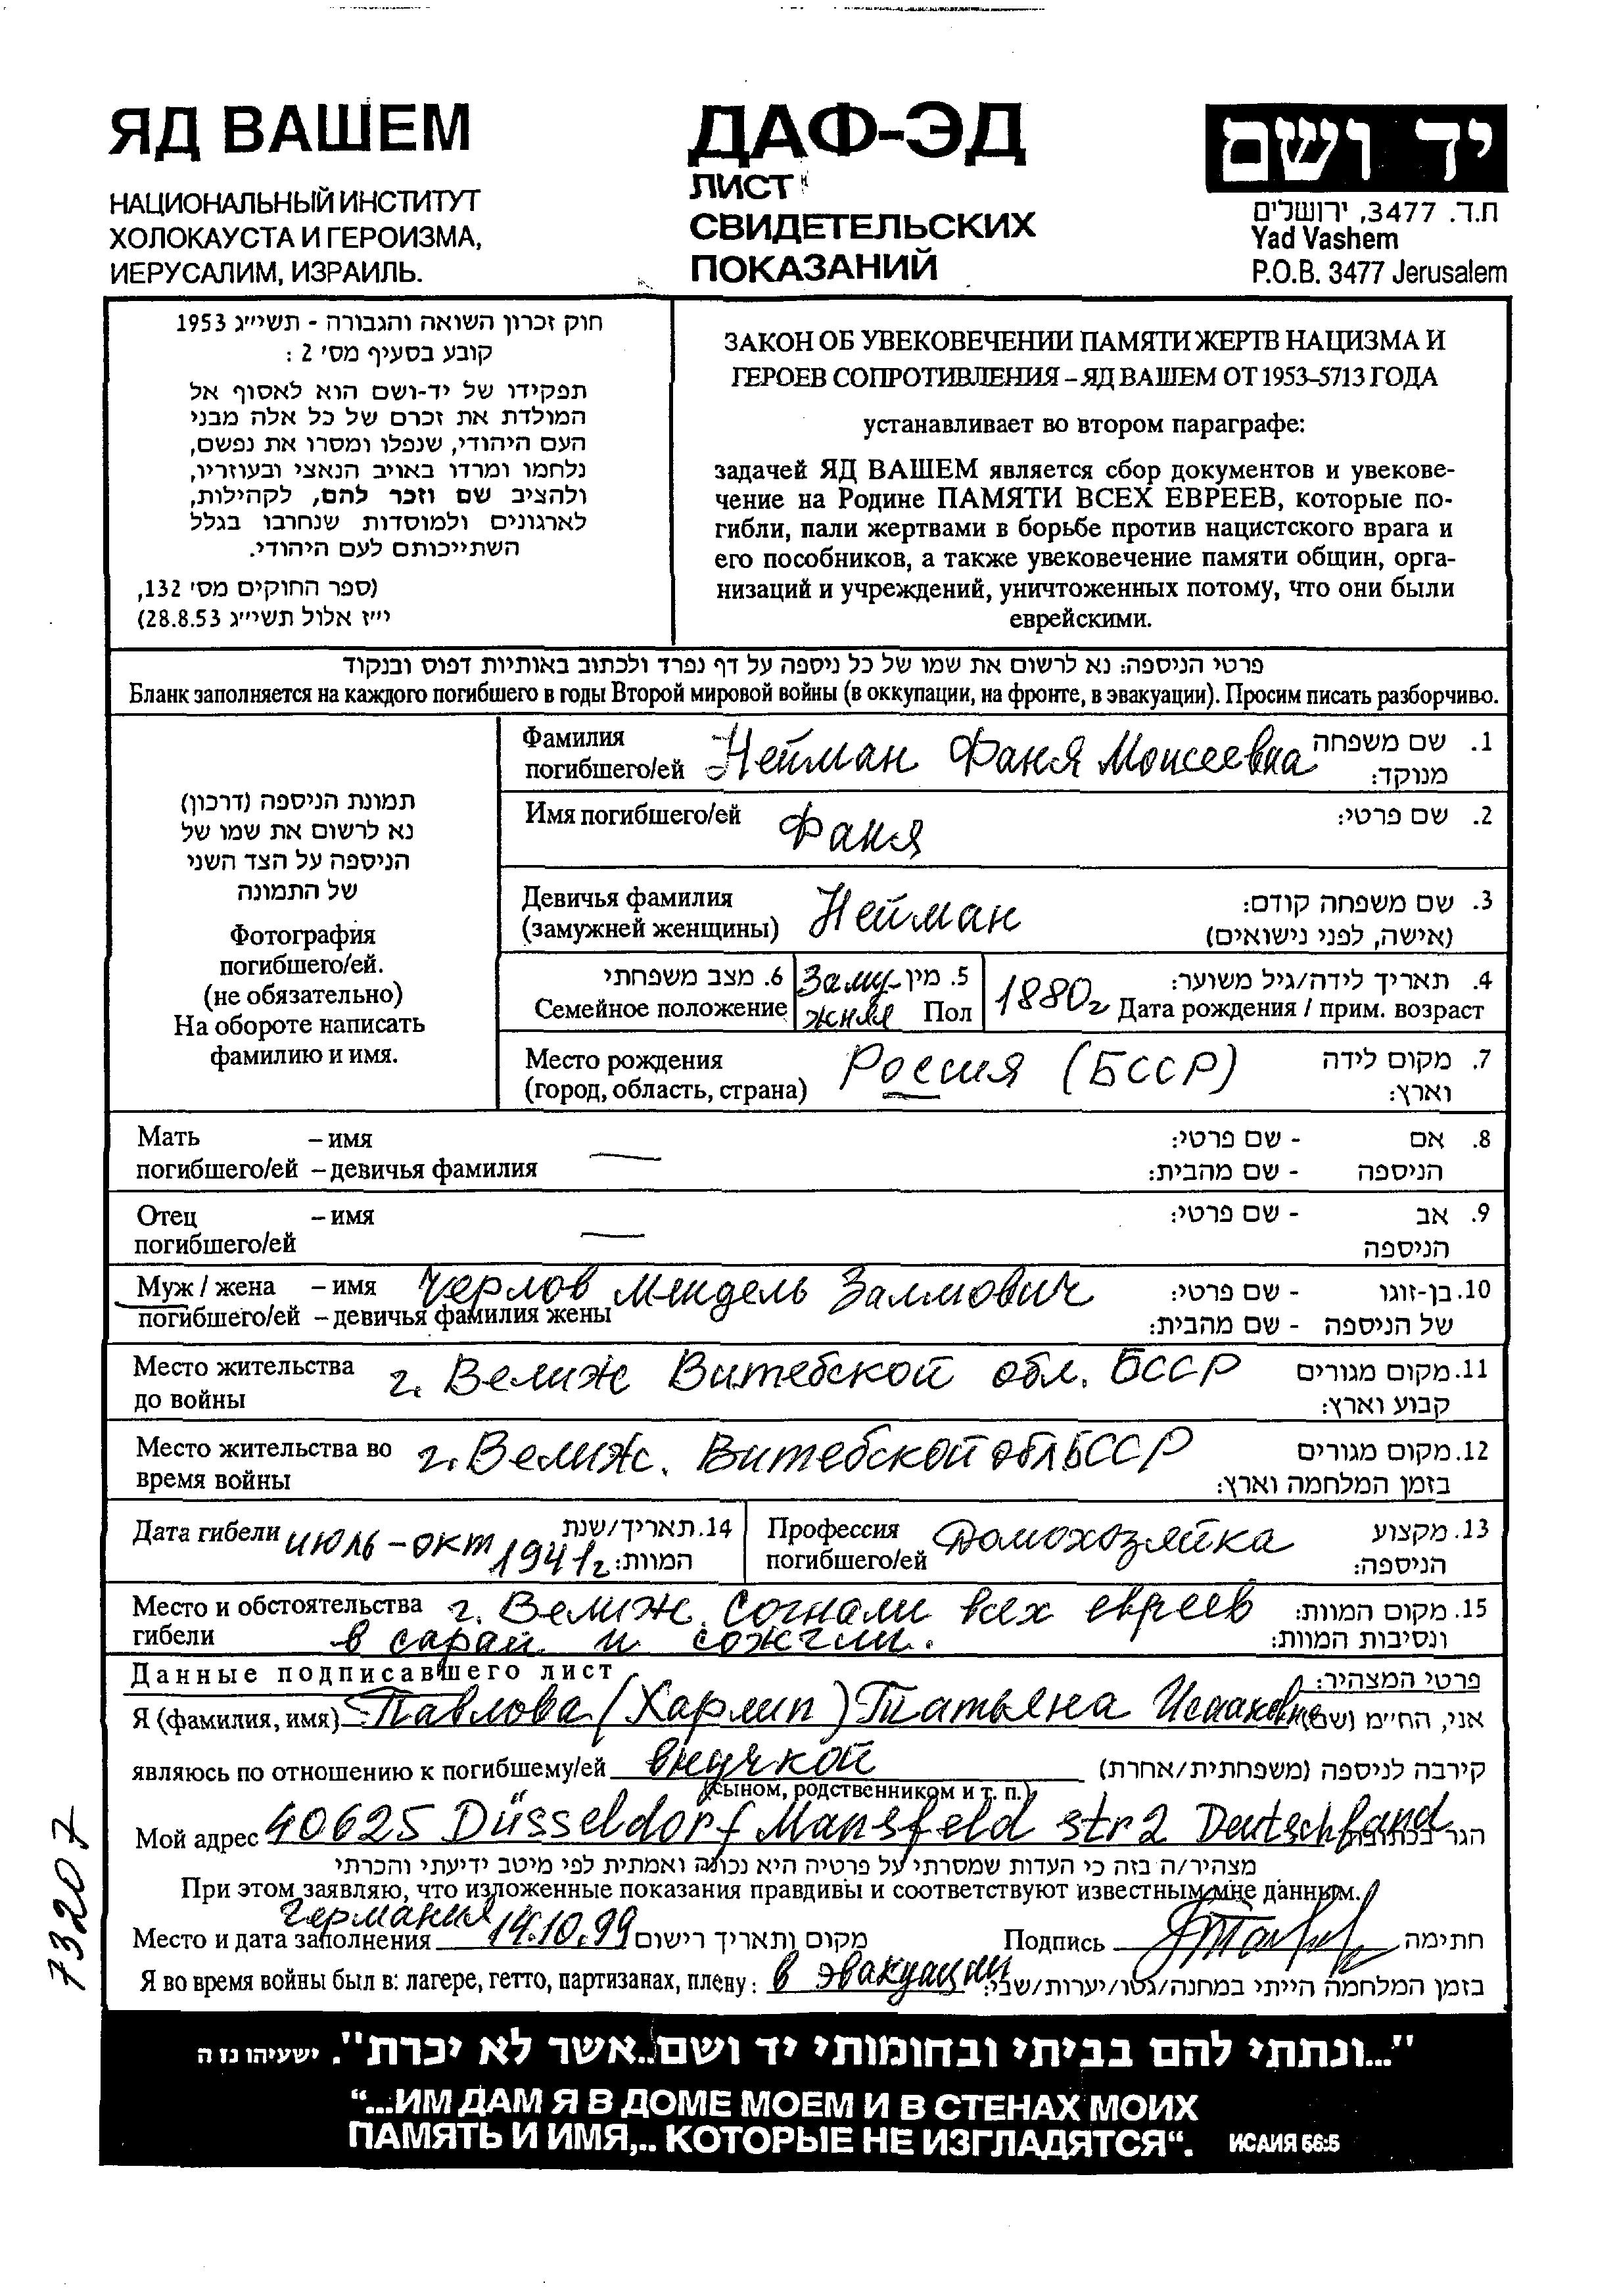 ЯД ВАШЕМ
НАЦИОНАЛЬНЫЙ ИНСТИТУТ
ХОЛОКАУСТА И ГЕРОИЗМА,
ИЕРУСАЛИМ, ИЗРАИЛЬ.
ДАФ-ЭД
ЛИСТ
СВИДЕТЕЛЬСКИХ
ПОКАЗАНИЙ
יד ושם
ת.ד. 3477, ירושלים
Yad Vashem
P.O.B. 3477 Jerusalem
חוק זכרון השואה והגבורה - תשי״ג 1953
קובע בסעיף מס׳ 2 :
תפקידו של יד-ושם הוא לאסוף אל
המולדת את זכרם של כל אלה מבני
העם היהודי, שנפלו ומסרו את נפשם,
נלחמו ומרדו באויב הנאצי ובעוזריו,
ולהציב שם וזכר להם, לקהילות,
לארגונים ולמוסדות שנחרבו בגלל
השתייכותם לעם היהודי.
(ספר החוקים מס׳ 132,
י״ז אלול תשי״ג 28.8.53)
ЗАКОН ОБ УВЕКОВЕЧЕНИИ ПАМЯТИ ЖЕРТВ НАЦИЗМА И
ГЕРОЕВ СОПРОТИВЛЕНИЯ – ЯД ВАШЕМ ОТ 1953–5713 ГОДА
устанавливает во втором параграфе:
задачей ЯД ВАШЕМ является сбор документов и увекове-
чение на Родине ПАМЯТИ ВСЕХ ЕВРЕЕВ, которые по-
гибли, пали жертвами в борьбе против нацистского врага и
его пособников, а также увековечение памяти общин, орга-
низаций и учреждений, уничтоженных потому, что они были
еврейскими.
פרטי הניספה: נא לרשום את שמו של כל ניספה על דף נפרד ולכתוב באותיות דפוס ובנקוד
Бланк заполняется на каждого погибшего в годы Второй мировой войны (в оккупации, на фронте, в эвакуации). Просим писать разборчиво.
תמונת הניספה (דרכון)
נא לרשום את שמו של
הניספה על הצד השני
של התמונה
Фотография
погибшего/ей.
(не обязательно)
На обороте написать
фамилию и имя.
Фамилия погибшего/ей Нейман Фаня Моисеевна 1. שם משפחה מנוקד:
Имя погибшего/ей Фаня 2. שם פרטי:
Девичья фамилия Нейман 3. שם משפחה קודם:
(замужней женщины) (אישה, לפני נישואים)
6. מצב משפחתי Заму- 5. מין 4. תאריך לידה/גיל משוער:
Семейное положение жняя Пол 1880г Дата рождения / прим. возраст
Место рождения Россия (БССР) 7. מקום לידה
(город, область, страна) וארץ:
Мать – имя — 8. אם - שם פרטי:
погибшего/ей – девичья фамилия הניספה - שם מהבית:
Отец – имя — 9. אב - שם פרטי:
погибшего/ей הניספה
Муж / жена – имя Черлов Мендель Залмович 10. בן-זוגו - שם פרטי:
погибшего/ей – девичья фамилия жены של הניספה - שם מהבית:
Место жительства г. Велиж Витебской обл. БССР 11. מקום מגורים
до войны קבוע וארץ:
Место жительства во г. Велиж. Витебской обл БССР 12. מקום מגורים
время войны בזמן המלחמה וארץ:
Дата гибели июль – окт 1941г 14. תאריך/שנת המוות:
Профессия погибшего/ей Домохозяйка 13. מקצוע הניספה:
Место и обстоятельства г. Велиж. Согнали всех евреев 15. מקום המוות:
гибели в сарай и сожгли. ונסיבות המוות:
Данные подписавшего лист פרטי המצהיר:
Я (фамилия, имя) Павлова (Харлип) Татьяна Исааковна אני, החי״מ (שם)
являюсь по отношению к погибшему/ей внучкой קירבה לניספה (משפחתית/אחרת)
(сыном, родственником и т. п.)
Мой адрес 40625 Düsseldorf Mansfeld str 2 Deutschland הגר בכתובת
מצהיר/ה בזה כי העדות שמסרתי על פרטיה היא נכונה ואמתית לפי מיטב ידיעתי והכרתי
При этом заявляю, что изложенные показания правдивы и соответствуют известным мне данным.
Германия
Место и дата заполнения 14.10.99 מקום ותאריך רישום Подпись חתימה
Я во время войны был в: лагере, гетто, партизанах, плену: в эвакуации בזמן המלחמה הייתי במחנה/גטו/יערות/שבי:
73207
"...ונתתי להם בביתי ובחומותי יד ושם..אשר לא יכרת". ישעיהו נז ה
“...ИМ ДАМ Я В ДОМЕ МОЕМ И В СТЕНАХ МОИХ
ПАМЯТЬ И ИМЯ,.. КОТОРЫЕ НЕ ИЗГЛАДЯТСЯ“. ИСАИЯ 56:5